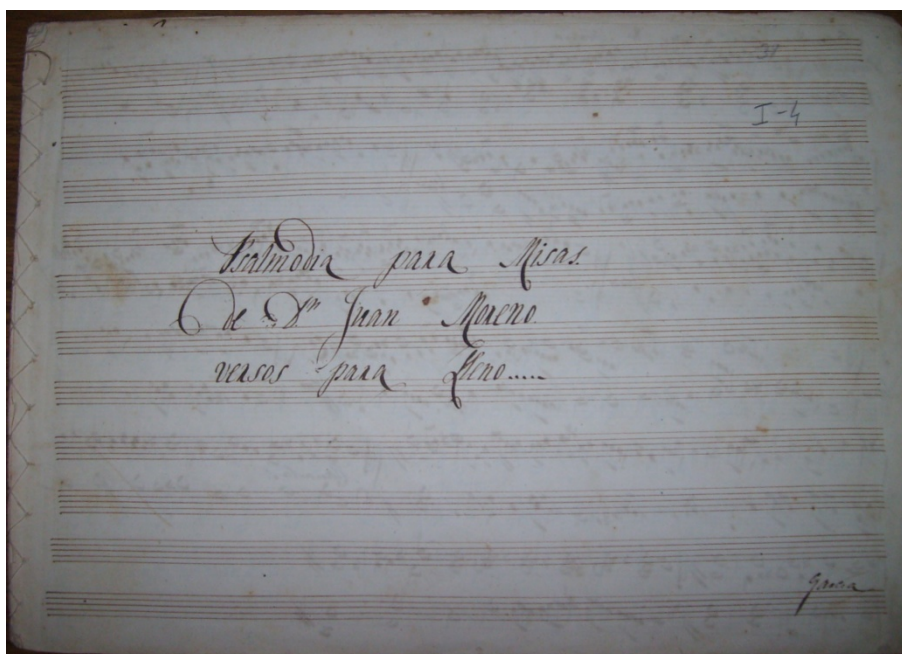 31
I-4
Psalmodia para Misas.
de Dn Juan Moreno.
versos para Lleno.....
Garcia